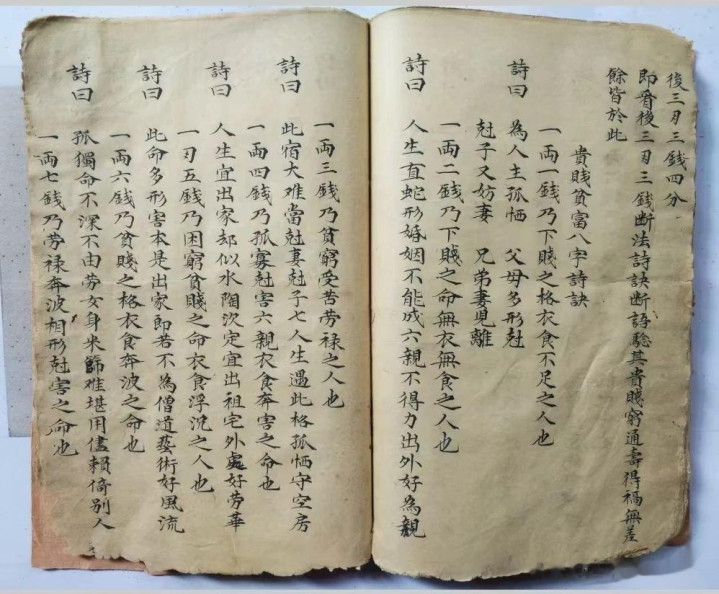 後三刃三錢四分
即看後三刃三錢断法詩訣断語聡其貴賤窮通壽得福無差
餘皆於此
貴賤貧富八字詩訣
一兩一錢乃下賤之格衣食不足之人也
詩曰 為人主孤恓 父母多形尅
尅子又妨妻 兄弟妻児離
一兩二錢乃下賤之命無衣無食之人也
詩曰 人生直蛇形婚姻不能成六親不得力出外好為親
一兩三錢乃貧窮受苦劳禄之人也
詩曰 此宿大难當尅妻尅子七人生遇此格孤恓守空房
一兩四錢乃孤寡尅害六親衣食奔害之命也
詩曰 人生宜出家却似水陶沙定宜出祖宅外處好劳華
一刃五錢乃困窮貧賤之命衣食浮沈之人也
詩曰 此命多形害本是出家即若不為僧道藝術好風流
一兩六錢乃貧賤之格衣食奔波之命也
詩曰 孤獨命不深不由劳女身米篩难堪用儘賴倚別人
一兩七錢乃劳禄奔波相形尅害之命也